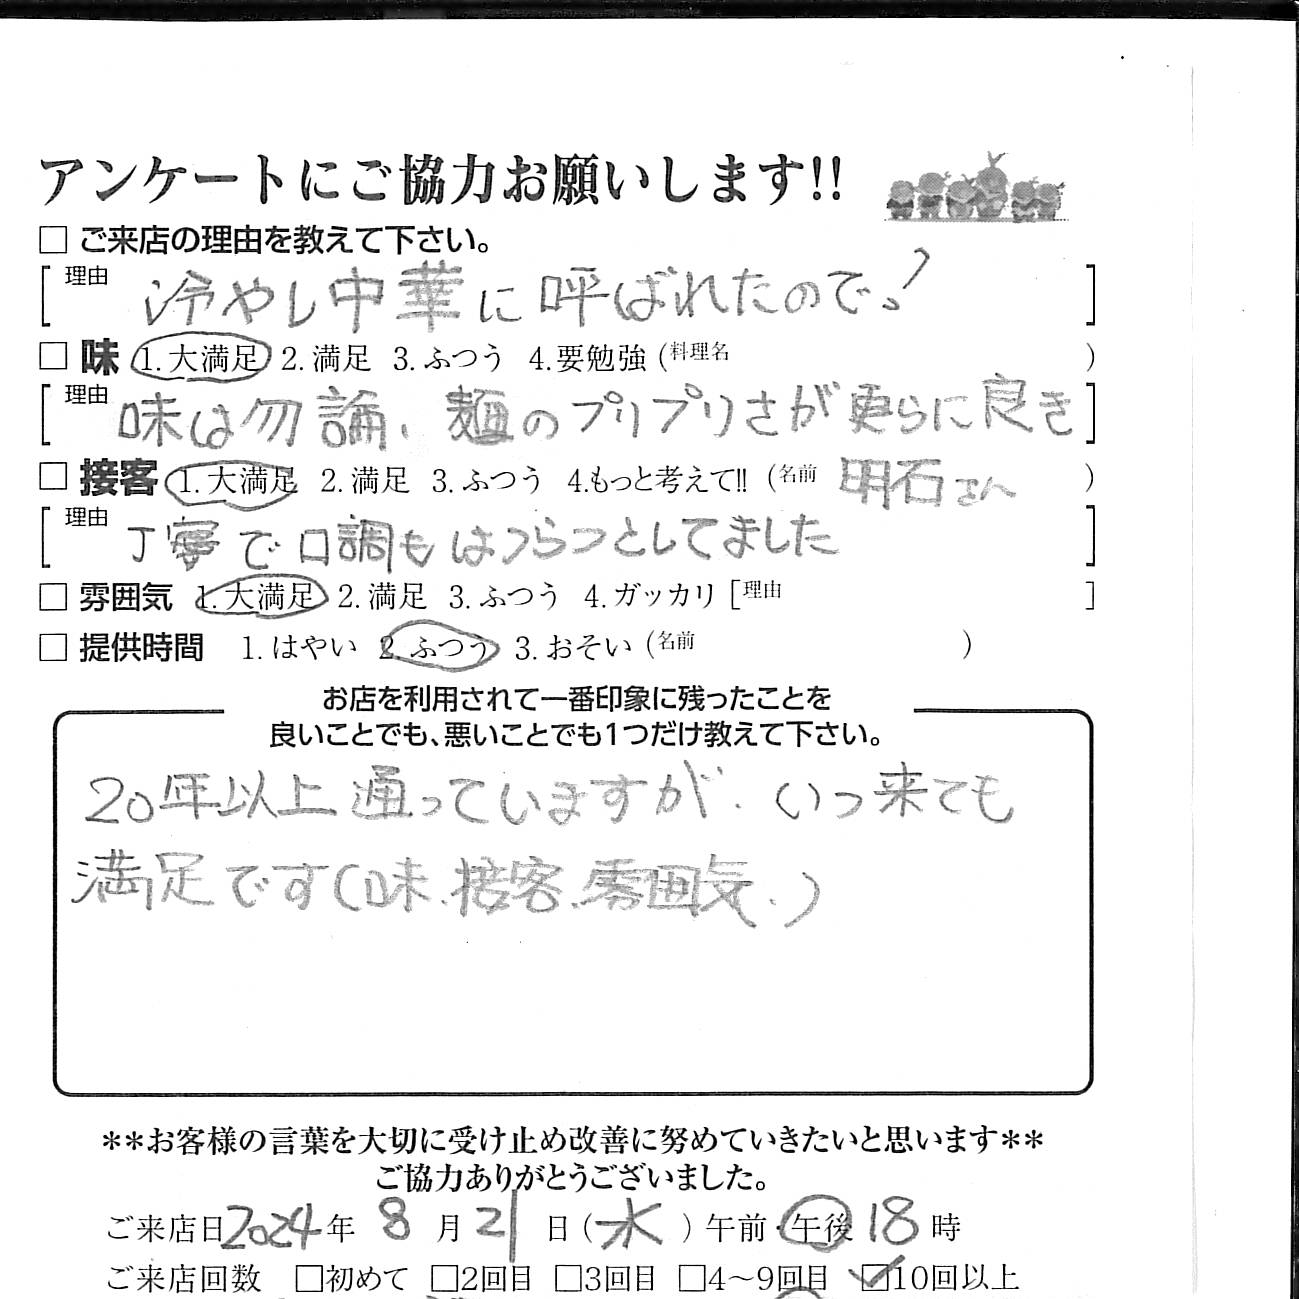 アンケートにご協力お願いします!!
□ ご来店の理由を教えて下さい。
[理由 冷やし中華に呼ばれたので。]
□ 味 1.大満足 2.満足 3.ふつう 4.要勉強 (料理名 )
[理由 味は勿論、麺のプリプリさが更らに良き]
□ 接客 1.大満足 2.満足 3.ふつう 4.もっと考えて!! (名前 明石さん )
[理由 丁寧で口調もはつらつとしてました]
□ 雰囲気 1.大満足 2.満足 3.ふつう 4.ガッカリ [理由 ]
□ 提供時間 1.はやい 2.ふつう 3.おそい (名前 )
お店を利用されて一番印象に残ったことを
良いことでも、悪いことでも1つだけ教えて下さい。
20年以上通っていますが、いつ来ても
満足です(味、接客、雰囲気、)
**お客様の言葉を大切に受け止め改善に努めていきたいと思います**
ご協力ありがとうございました。
ご来店日2024年 8月21日(水)午前・午後18時
ご来店回数 □初めて □2回目 □3回目 □4〜9回目 ☑10回以上